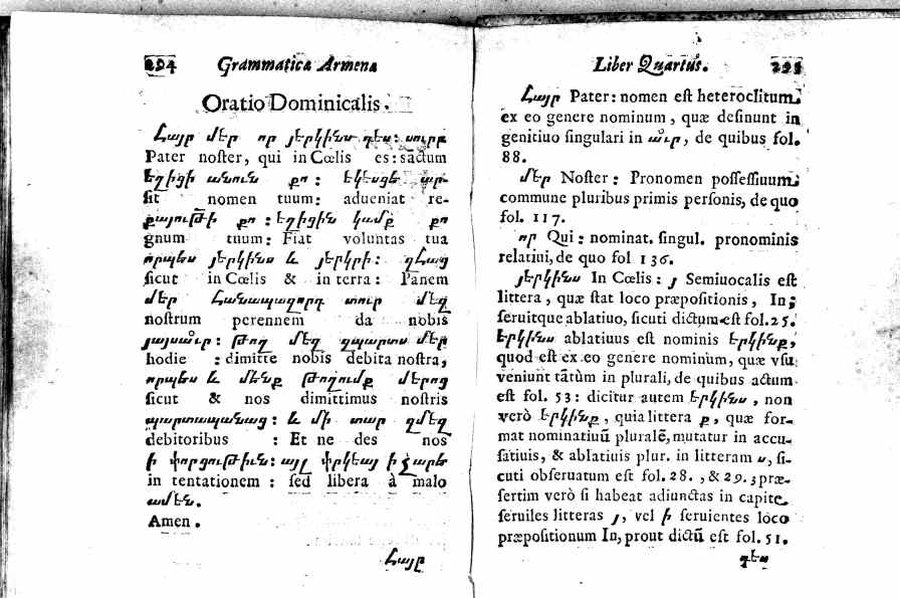 294 Grammatica Armena
Oratio Dominicalis.
Հայր մեր որ յերկինս ես: սուրբ
Pater noster, qui in Cœlis es: sactum
եղիցի անուն քո: եկեսցե ար-
sit nomen tuum: adueniat re-
քայութի քո: եղիցին կամք քո
gnum tuum: Fiat voluntas tua
որպես յերկինս և յերկրի: զՀաց
sicut in Cœlis & in terra: Panem
մեր Հանապազորդ տուր մեզ
nostrum perennem da nobis
յայսաւր: Թող մեզ զպարտս մեր
hodie : dimitte nobis debita nostra,
որպես և մենք Թողումք մերոց
sicut & nos dimittimus nostris
պարտապանաց: և մի տար զմեզ
debitoribus : Et ne des nos
ի փորցութիւն: այլ փրկեայ ի չարե
in tentationem : sed libera à malo
ամեն.
Amen.
Հայր
Liber Quartus. 295
Հայր Pater: nomen est heteroclitum,
ex eo genere nominum, quæ desinunt in
genitiuo singulari in աւր, de quibus fol.
88.
մեր Noster: Pronomen possessiuum,
commune pluribus primis personis, de quo
fol. 117.
որ Qui: nominat. singul. pronominis
relatiui, de quo fol 136.
յերկինս In Cœlis: յ Semiuocalis est
littera, quæ stat loco præpositionis, In;
seruitque ablatiuo, sicuti dictum est fol. 25.
երկինս ablatiuus est nominis երկինք,
quod est ex eo genere nominum, quæ vsu
veniunt tātùm in plurali, de quibus actum
est fol. 53: dicitur autem երկինս, non
verò երկինք, quia littera ք, quæ for-
mat nominatiuū pluralē, mutatur in accu-
satiuis, & ablatiuis plur. in litteram ս, si-
cuti obseruatum est fol. 28., & 29.; præ-
sertim verò si habeat adiunctas in capite
seruiles litteras յ, vel ի seruientes loco
præpositionum In, prout dictū est fol. 51.